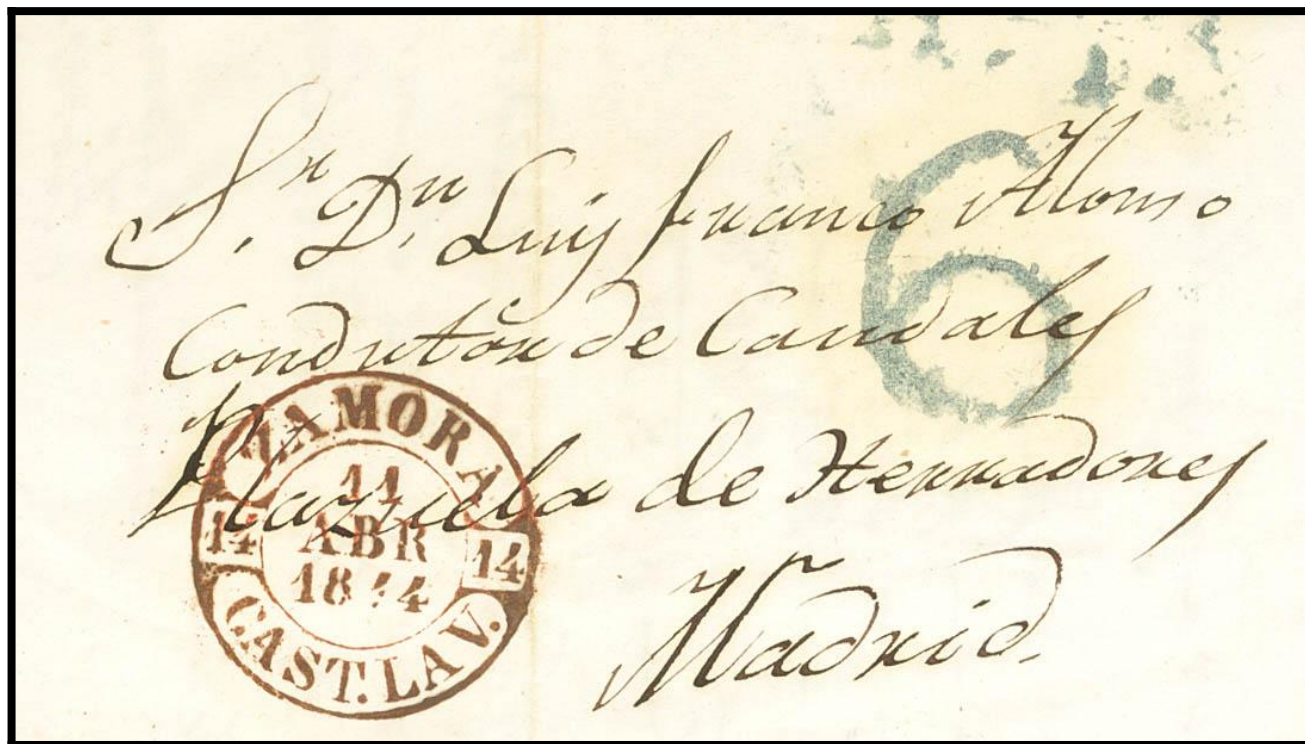 6
Sr. Dn. Luis franco Alonso
Condutor de Caudales
Plazuela de Herradores
Madrid.
ZAMORA
11
ABR
1844
14 14
CAST. LA V.